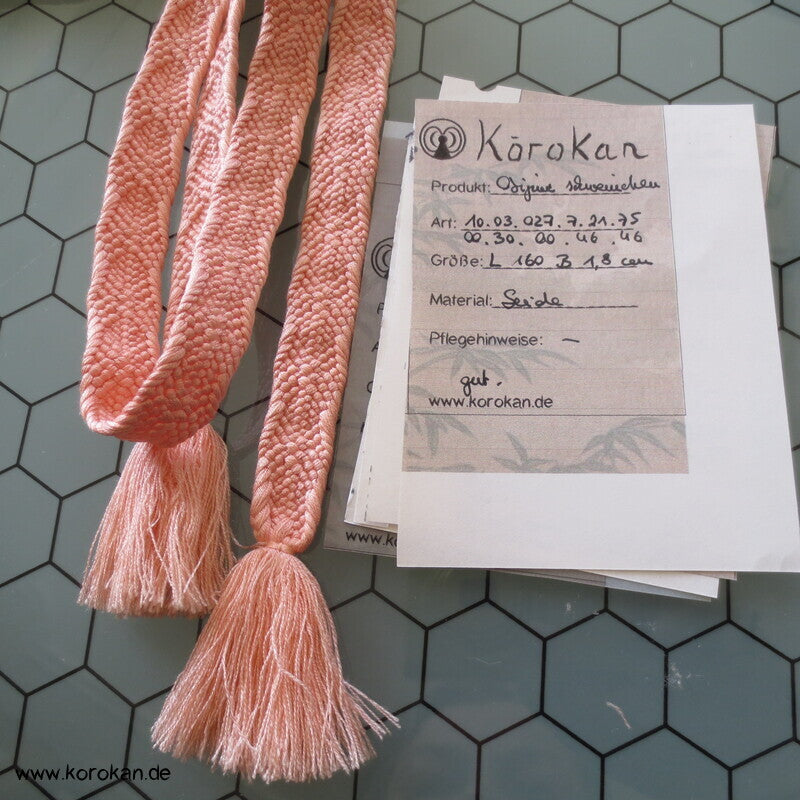 Kōrokan
Produkt:
Art: 10.03.027.7.21.75
00.30.00.46.46
Größe: L 160 B 1,8 cm
Material: Seide
Pflegehinweise: –
gut.
www.korokan.de
www.ko
www.korokan.de